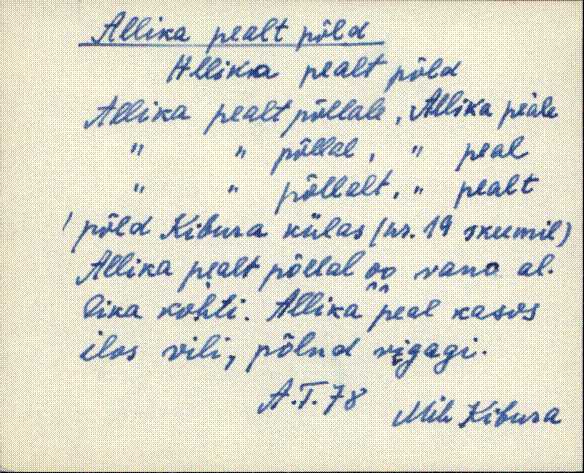 Allika pealt põld
Allikka pealt põld
Allika pealt põllale, Allika peale
" " põllal, " peal
" " põllalt, " pealt
põld Kibura külas (nr. 19 skeemil)
Allika pealt põllal oo vana al-
lika kohti. Allika peal kasvs
ilos vili, põlnd vigagi.
A.T. 78 Mih Kibura